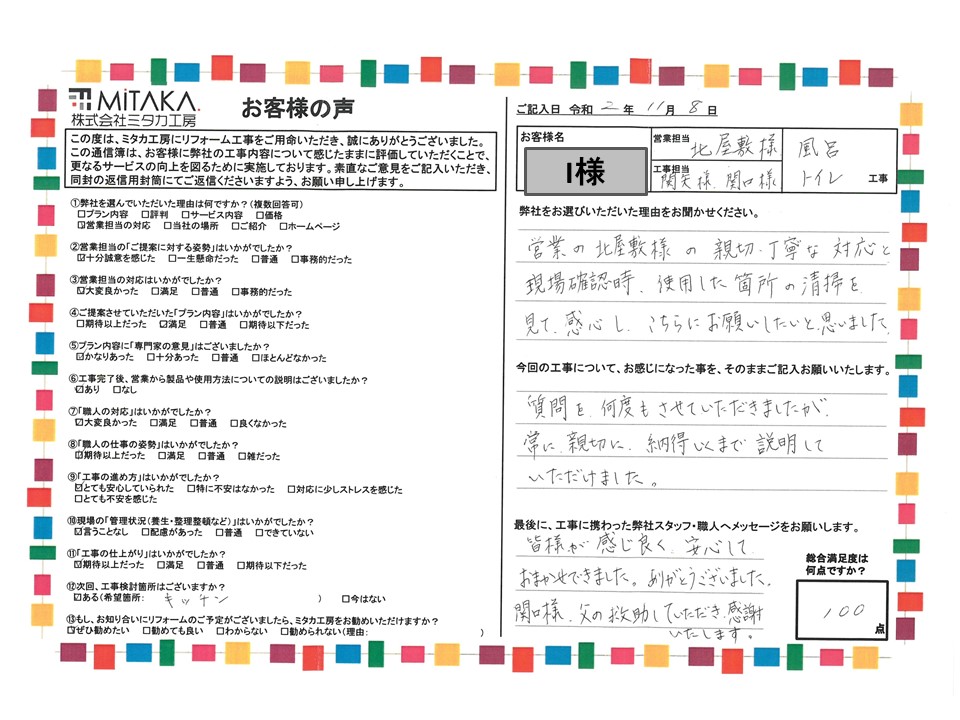 MiTAKA.
株式会社ミタカ工房
お客様の声
この度は、ミタカ工房にリフォーム工事をご用命いただき、誠にありがとうございました。
この通信簿は、お客様に弊社の工事内容について感じたままに評価していただくことで、
更なるサービスの向上を図るために実施しております。素直なご意見をご記入いただき、
同封の返信用封筒にてご返信くださいますよう、お願い申し上げます。
①弊社を選んでいただいた理由は何ですか？(複数回答可)
□プラン内容 □評判 □サービス内容 □価格
☑営業担当の対応 □当社の場所 □ご紹介 □ホームページ
②営業担当の「ご提案に対する姿勢」はいかがでしたか？
☑十分誠意を感じた □一生懸命だった □普通 □事務的だった
③営業担当の対応はいかがでしたか？
☑大変良かった □満足 □普通 □事務的だった
④ご提案させていただいた「プラン内容」はいかがでしたか？
□期待以上だった ☑満足 □普通 □期待以下だった
⑤プラン内容に「専門家の意見」はございましたか？
☑かなりあった □十分あった □普通 □ほとんどなかった
⑥工事完了後、営業から製品や使用方法についての説明はございましたか？
☑あり □なし
⑦「職人の対応」はいかがでしたか？
☑大変良かった □満足 □普通 □良くなかった
⑧「職人の仕事の姿勢」はいかがでしたか？
☑期待以上だった □満足 □普通 □雑だった
⑨「工事の進め方」はいかがでしたか？
☑とても安心していられた □特に不安はなかった □対応に少しストレスを感じた
□とても不安を感じた
⑩現場の「管理状況(養生・整理整頓など)」はいかがでしたか？
☑言うことなし □配慮があった □普通 □できていない
⑪「工事の仕上がり」はいかがでしたか？
☑期待以上だった □満足 □普通 □期待以下だった
⑫次回、工事検討箇所はございますか？
☑ある(希望箇所: キッチン ) □今はない
⑬もし、お知り合いにリフォームのご予定がございましたら、ミタカ工房をお勧めいただけますか？
☑ぜひ勧めたい □勧めても良い □わからない □勧められない(理由: )
ご記入日 令和 2 年 11 月 8 日
お客様名
I様
営業担当 北屋敷様
工事担当 関矢様、関口様
風呂
トイレ 工事
弊社をお選びいただいた理由をお聞かせください。
営業の北屋敷様の親切・丁寧な対応と
現場確認時、使用した箇所の清掃を
見て、感心し、こちらにお願いしたいと思いました。
今回の工事について、お感じになった事を、そのままご記入お願いいたします。
質問を何度もさせていただきましたが、
常に、親切に、納得いくまで説明して
いただけました。
最後に、工事に携わった弊社スタッフ・職人へメッセージをお願いします。
皆様が感じ良く、安心して
おまかせできました。ありがとうございました。
関口様、父の救助していただき、感謝
いたします。
総合満足度は
何点ですか？
100
点